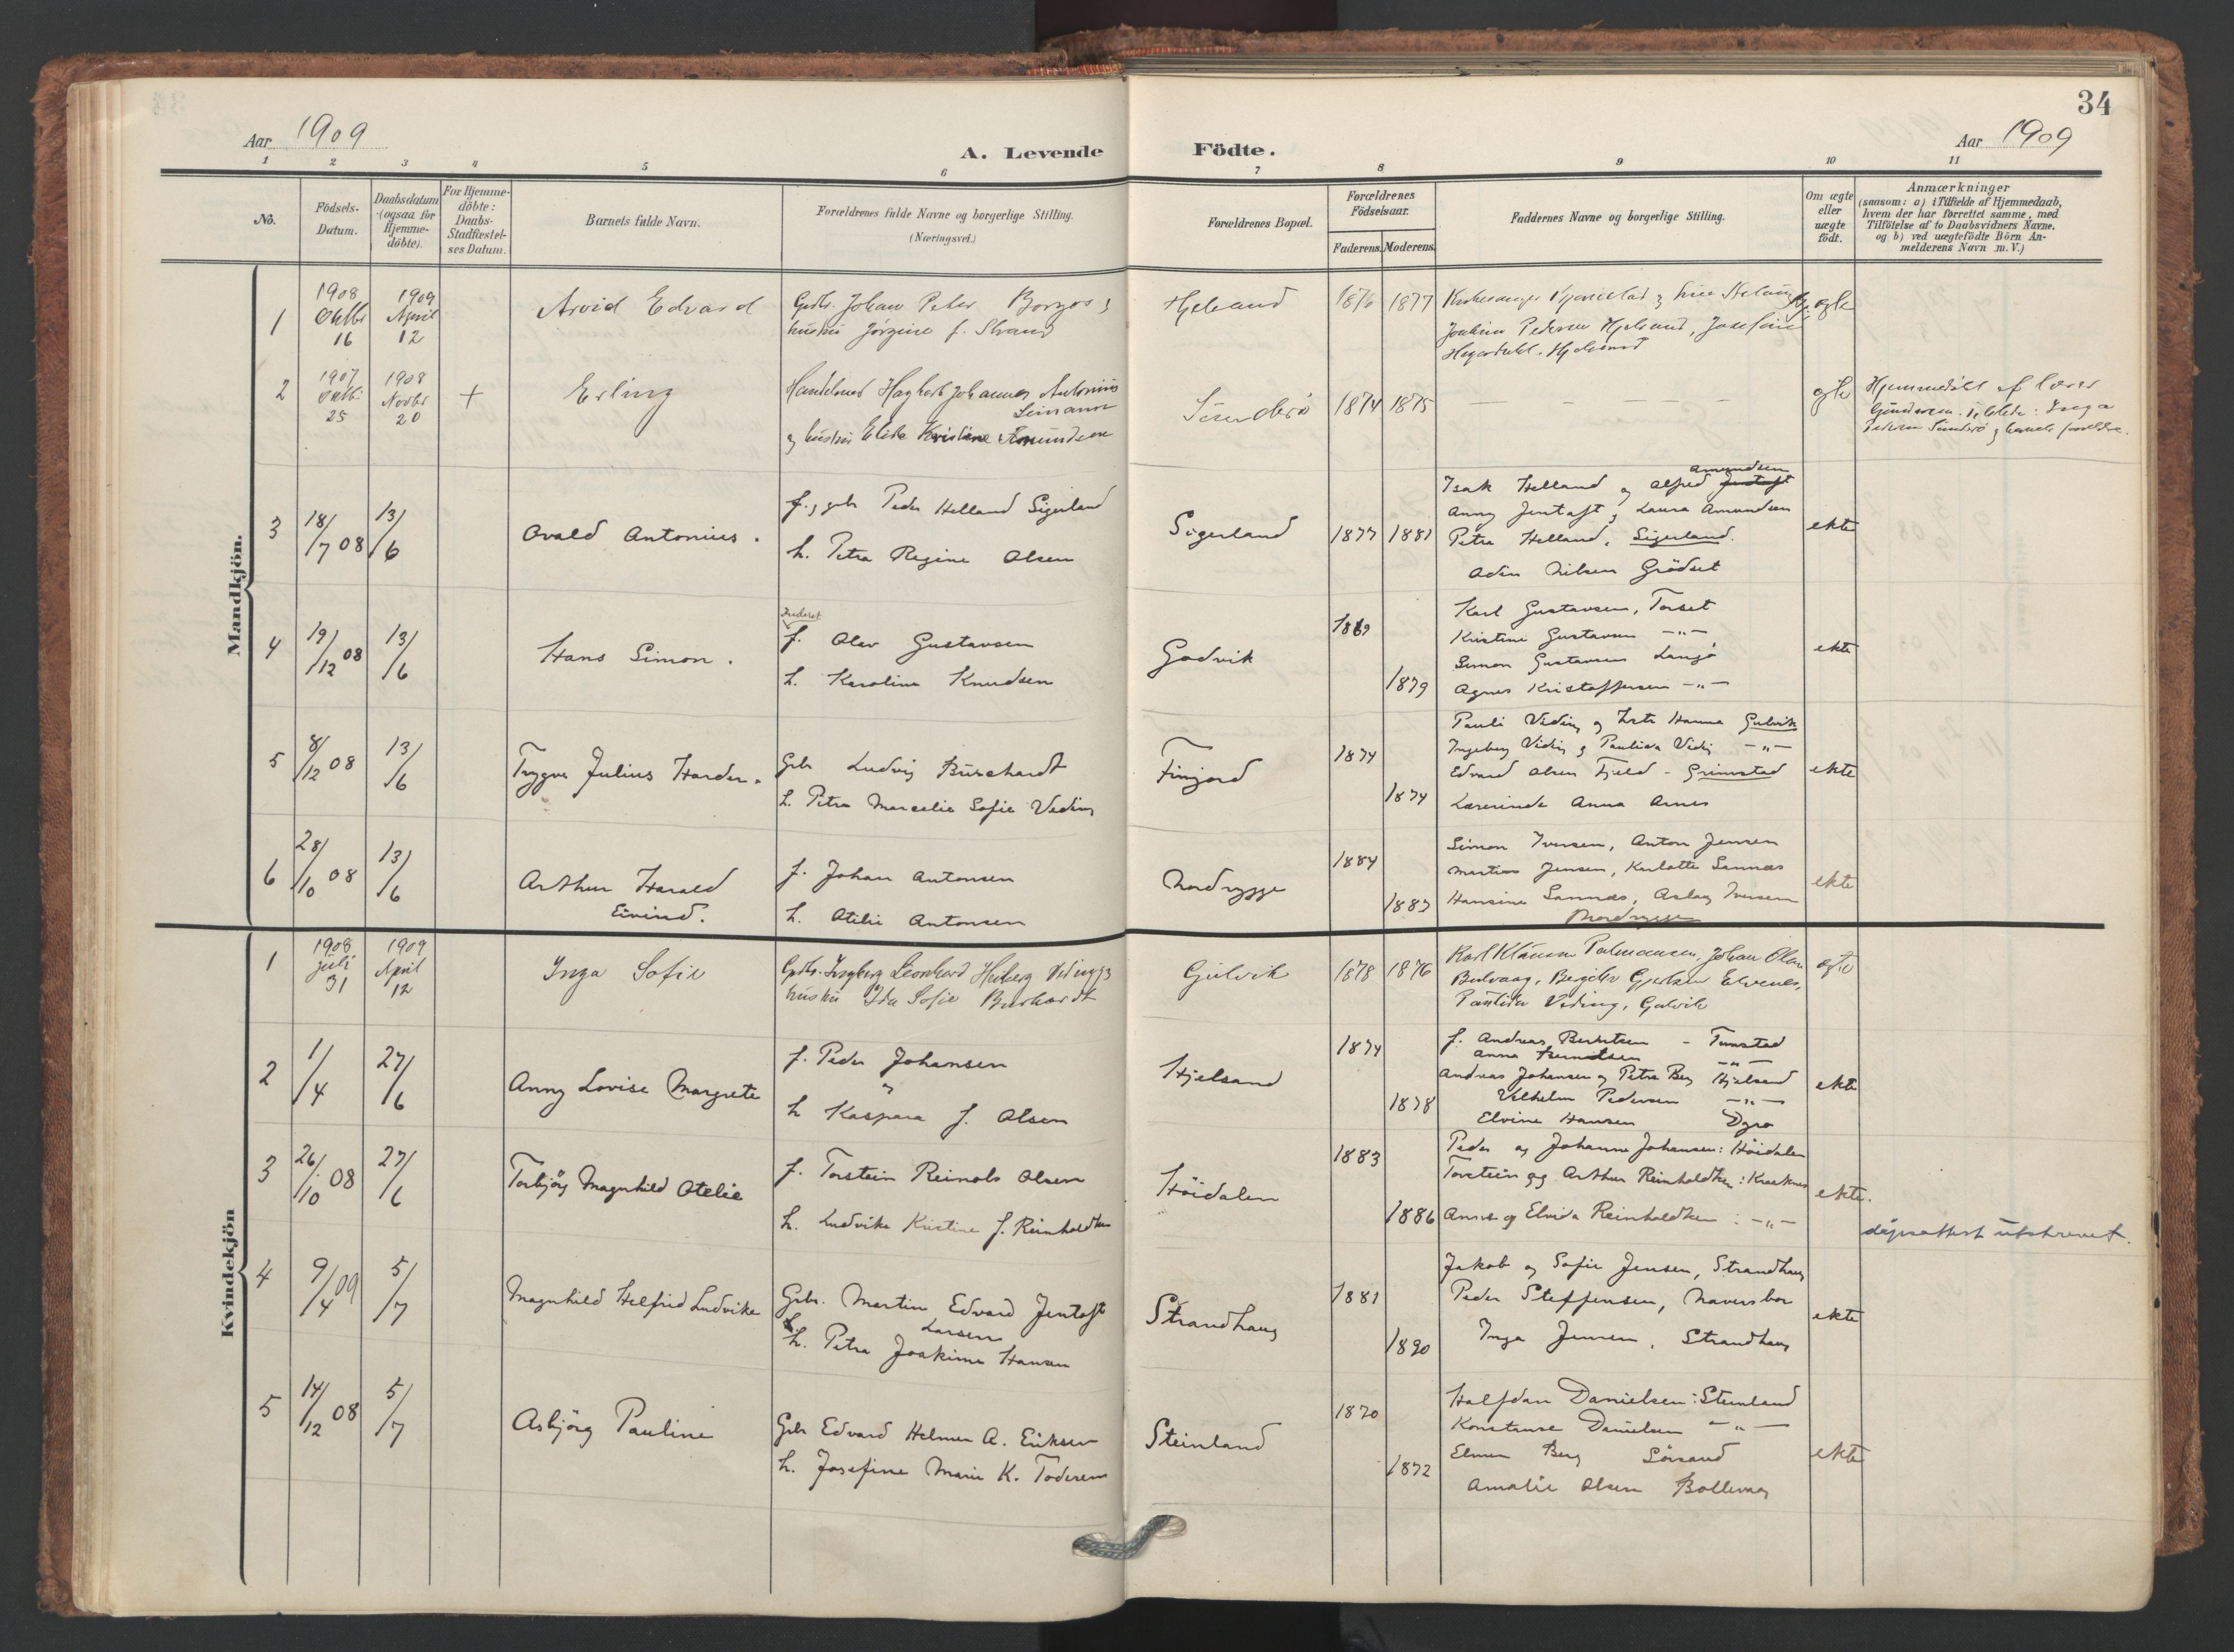 34
Aar 1909
A. Levende Födte.
Aar 1909
1 2 3 4 5 6 7 8 9 10 11
No.
Födsels-Datum.
Daabsdatum (ogsaa for Hjemme-döbte).
For Hjemme-döbte: Daabs-Stadfæstel-ses Datum.
Barnets fulde Navn.
Forældrenes fulde Navne og borgerlige Stilling.
(Næringsvei.)
Forældrenes Bopæl.
Forældrenes Födselsaar.
Faderens. Moderens.
Faddernes Navne og borgerlige Stilling.
Om ægte eller uægte födt.
Anmærkninger
(saasom: a) i Tilfælde af Hjemmedaab,
hvem der har forrettet samme, med
Tilföielse af to Daabsvidners Navne,
og b) ved uægtefödte Börn An-
melderens Navn m. V.)
Mandkjön.
1
1908 Oktbr 16
1909 April 12
Arvid Edvard
Gbr. Johan Peter Borgos
hustru Jørgine f. Strand
Hjelsand
1876 1877
Joakim Pedersen Hjelsand, Josefine
Hjelsand
ægte
2
1907 Oktbr 25
1908 Novbr 20
+
Erling
Handelsmand Hagbart Johannes Antonius
Simann
og hustru Elida Kristine Amundsen
1874 1875
— — — — —
ægte
Hjemmedöbt af lærer
Gundersen. Inga
Pedersen
3
18/7 08
13/6
Ovald Antonius.
f. gbr Peder Helland Sigerland
h. Petra Regine Olsen
Sigerland
1877 1881
Isak Helland og Alfred Amundsen
Anny Jentoft, Laura Amundsen
Petra Helland, Sigerland.
Adin Nilsen Grödset
ekte
4
19/12 08
13/6
Hans Simon.
f. Olav Gustavsen
h. Karoline Knudsen
Godvik
1869
1879
Karl Gustavsen, Torset
Kristine Gustavsen —"—
Simon Gustavsen Langö
Agnes Kristoffersen —"—
ekte
5
8/12 08
13/6
Trygve Julius Harder.
Gbr Ludvig Burchardt
h. Petra Marcelie Sofie Veding
Finjord
1874
1874
Pauli Veding og Hanna Gulvik
Ingeborg Veding og Paulina Veding —"—
Edvard Olsen Fjeld - Grimstad
Lærerinde Anna Arnes
ekte
6
28/10 08
13/6
Arthur Harald
Eivind.
f. Johan Antonsen
h. Otilie Antonsen
Nordrygge
1884
1883
Simon Iversen, Anton Jensen
Martine Jensen, Karlotte Sannæs
Hansine Sannæs, Aslaug Iversen
Nordrygge
ekte
Kvindekjön
1
1908 juli 31
1909 April 12
Inga Sofie
Gbr. Ingberg Leonhard Heiberg Veding og
hustru Ida Sofie Burchardt
Gulvik
1878 1876
Karl Klausen Johan Olai
Bergitte Gjertsen Elvenes,
Paulida Veding, Gulvik
ægte
2
1/4
27/6
Anny Lovise Margrete
f. Peder Johansen
og
h Kaspara f. Olsen
Hjelsand
1874
1878
f. Andreas Berntsen - Tunstad
Anna Berntsen —"—
Andreas Johansen og Petra Berg Hjelsand
Vilhelm Pedersen —"—
Elvine Hansen Dyrö
ekte
3
26/10 08
27/6
Torbjörg Magnhild Otelie
f. Torstein Reinols Olsen
h. Ludvike Kristine f. Reinholdtsen
Höidalen
1883
1886
Peder og Johanne Johansen: Höidalen
Torstein og Arthur Reinholdtsen: Kraaknes
Anna og Elvida Reinholdtsen: —"—
ekte.
dåpsattest utskrevet.
4
9/4 09
5/7
Magnhild Helfrid Ludvike
Gbr. Martin Edvard Jentoft
Larsen
h. Petra Joakime Hansen
Strandhaug
1881
1890
Jakob og Sofie Jensen, Strandhaug
Peder Steffensen, Naversbor
Inga Jensen, Strandhaug
ekte
5
14/12 08
5/7
Asbjörg Pauline
Gbr Edvard Helmer A. Eriksen
h. Josefine Marie K. Todesen
Steinland
1870
1872
Halfdan Danielsen: Steinland
Konstanse Danielsen —"—
Elmer Berg Sörsand
Amalie Olsen
ekte